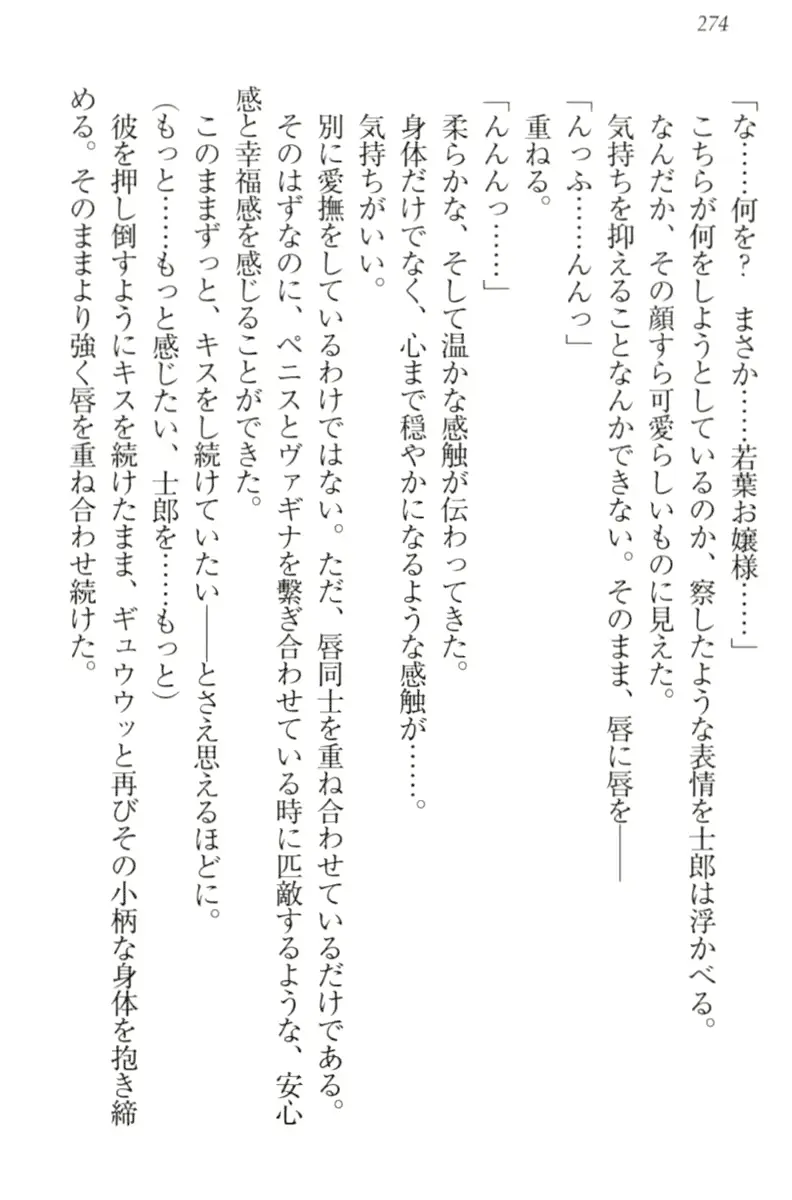 274
「な……何を？　まさか……若葉お嬢様……」
こちらが何をしようとしているのか、察したような表情を士郎は浮かべる。
なんだか、その顔すら可愛らしいものに見えた。
気持ちを抑えることなんかできない。そのまま、唇に唇を――
「んっふ……んんっ」
重ねる。
「んんんっ……」
柔らかな、そして温かな感触が伝わってきた。
身体だけでなく、心まで穏やかになるような感触が……。
気持ちがいい。
別に愛撫をしているわけではない。ただ、唇同士を重ね合わせているだけである。
そのはずなのに、ペニスとヴァギナを繋ぎ合わせている時に匹敵するような、安心
感と幸福感を感じることができた。
このままずっと、キスをし続けていたい――とさえ思えるほどに。
（もっと……もっと感じたい、士郎を……もっと）
彼を押し倒すようにキスを続けたまま、ギュウウッと再びその小柄な身体を抱き締
める。そのままより強く唇を重ね合わせ続けた。